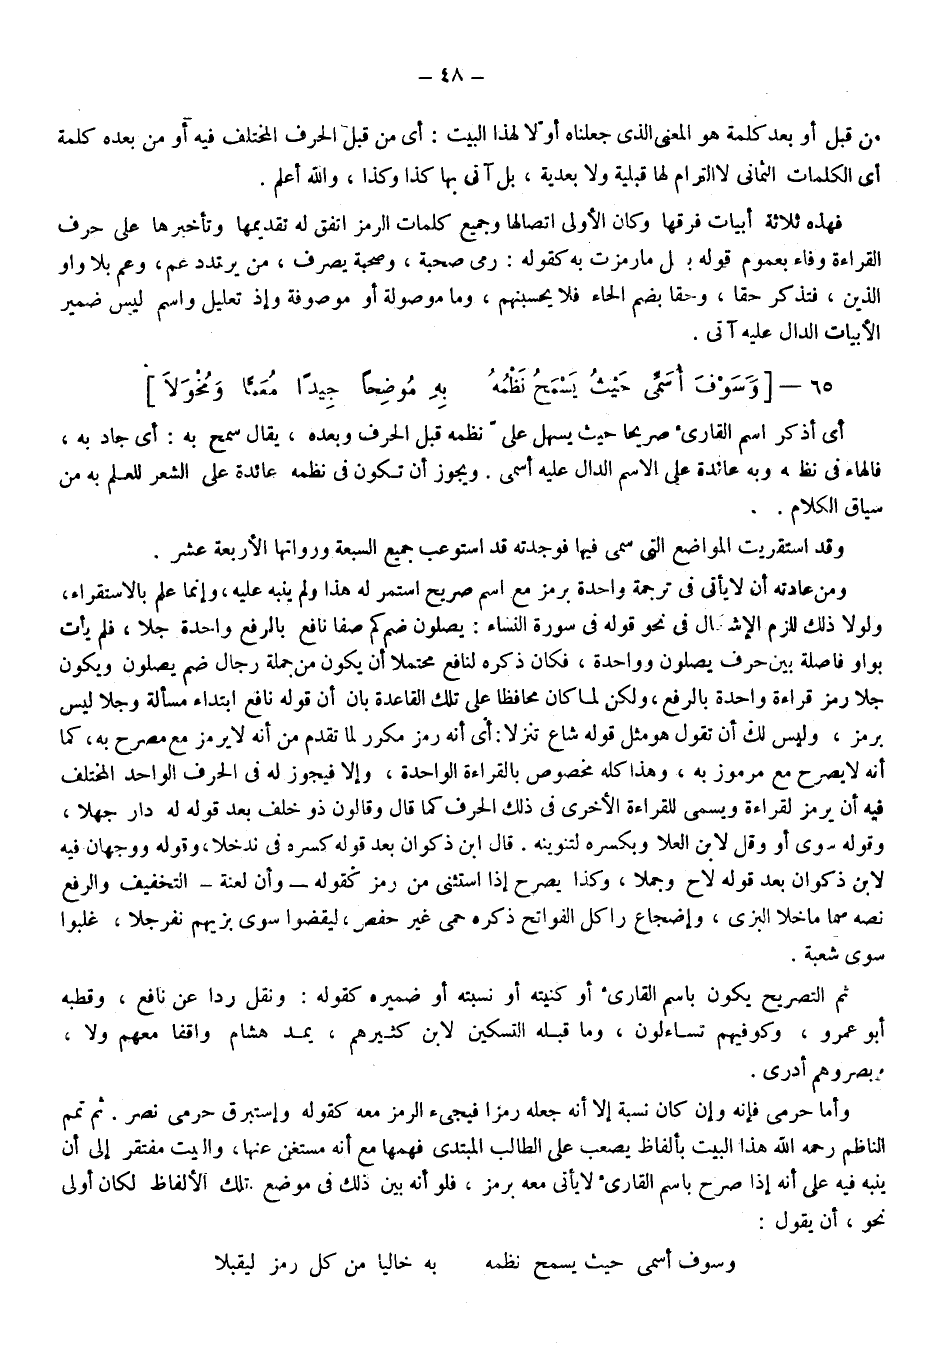 – ٤٨ –
من قبل أو بعد كلمة هو المعنى الذى جعلناه أولا لهذا البيت : أى من قبل الحرف المختلف فيه أو من بعده كلمة
أى الكلمات الثمانى لا التزام لها قبلية ولا بعدية ، بل آتى بها كذا وكذا ، والله أعلم .
فهذه ثلاثة أبيات فرقها وكان الأولى اتصالها وجميع كلمات الرمز اتفق له تقديمها وتأخيرها على حرف
القراءة وفاء بعموم قوله بل مارمزت به كقوله : رمى صحبة ، وصحبة يصرف ، من يرتدد عم ، وعم بلا واو
الذين ، فتذكر حقا ، وحقا بضم الحاء فلا يحسبنهم ، وما موصولة أو موصوفة وإذ تعليل واسم ليس ضمير
الأبيات الدال عليه آتى .
٦٥ – [وَسَوْفَ أُسَمِّى حَيْثُ يَسْمَحُ نَظْمُهُ بِهِ مُوضِحاً جِيدًا مُعَمًّا وَمُخْوَلاَ]
أى أذكر اسم القارئ صريحا حيث يسهل على نظمه قبل الحرف وبعده ، يقال سمح به : أى جاد به ،
فالهاء فى نظمه وبه عائدة على الاسم الدال عليه أسمى . ويجوز أن تكون فى نظمه عائدة على الشعر للعلم به من
سياق الكلام .
وقد استقريت المواضع التى سمى فيها فوجدته قد استوعب جميع السبعة ورواتها الأربعة عشر .
ومن عادته أن لا يأتى فى ترجمة واحدة برمز مع اسم صريح استمر له هذا ولم ينبه عليه ، وإنما علم بالاستقراء،
ولولا ذلك للزم الإشكال فى نحو قوله فى سورة النساء : يصلون ضم كم صفا نافع بالرفع واحدة جلا ، فلم يأت
بواو فاصلة بين حرف يصلون وواحدة ، فكان ذكره لنافع محتملا أن يكون من جملة رجال ضم يصلون ويكون
جلا رمز قراءة واحدة بالرفع ، ولكن لما كان محافظا على تلك القاعدة بان أن قوله نافع ابتداء مسألة وجلا ليس
برمز ، وليس لك أن تقول هو مثل قوله شاع تنزلا : أى أنه رمز مكرر لما تقدم من أنه لايرمز مع مصرح به ، كما
أنه لايصرح مع مرموز به ، وهذا كله مخصوص بالقراءة الواحدة ، وإلا فيجوز له فى الحرف الواحد المختلف
فيه أن يرمز لقراءة ويسمى للقراءة الأخرى فى ذلك الحرف كما قال وقالون ذو خلف بعد قوله له دار جهلا ،
وقوله سوى أو وقل لابن العلا وبكسره لتنوينه . قال ابن ذكوان بعد قوله كسره فى ندخلا ، وقوله ووجهان فيه
لابن ذكوان بعد قوله لاح وجملا ، وكذا يصرح إذا استثنى من رمز كقوله – وأن لعنة – التخفيف والرفع
نصه سما ماخلا البزى ، وإضجاع را كل الفواتح ذكره حمى غير حفص ، ليقضوا سوى بزيهم نفر جلا ، غلبوا
سوى شعبة .
ثم التصريح يكون باسم القارئ أو كنيته أو نسبته أو ضميره كقوله : ونقل ردا عن نافع ، وقطبه
أبو عمرو ، وكوفيهم تساءلون ، وما قبله التسكين لابن كثيرهم ، يمد هشام واقفا معهم ولا ،
وبصروهم أدرى .
وأما حرمى فإنه وإن كان نسبة إلا أنه جعله رمزا فيجىء الرمز معه كقوله وإستبرق حرمى نصر . ثم تمم
الناظم رحمه الله هذا البيت بألفاظ يصعب على الطالب المبتدى فهمها مع أنه مستغن عنها ، والبيت مفتقر إلى أن
ينبه فيه على أنه إذا صرح باسم القارئ لايأتى معه برمز ، فلو أنه بين ذلك فى موضع تلك الألفاظ لكان أولى
نحو ، أن يقول :
وسوف أسمى حيث يسمح نظمه به خاليا من كل رمز ليقبلا